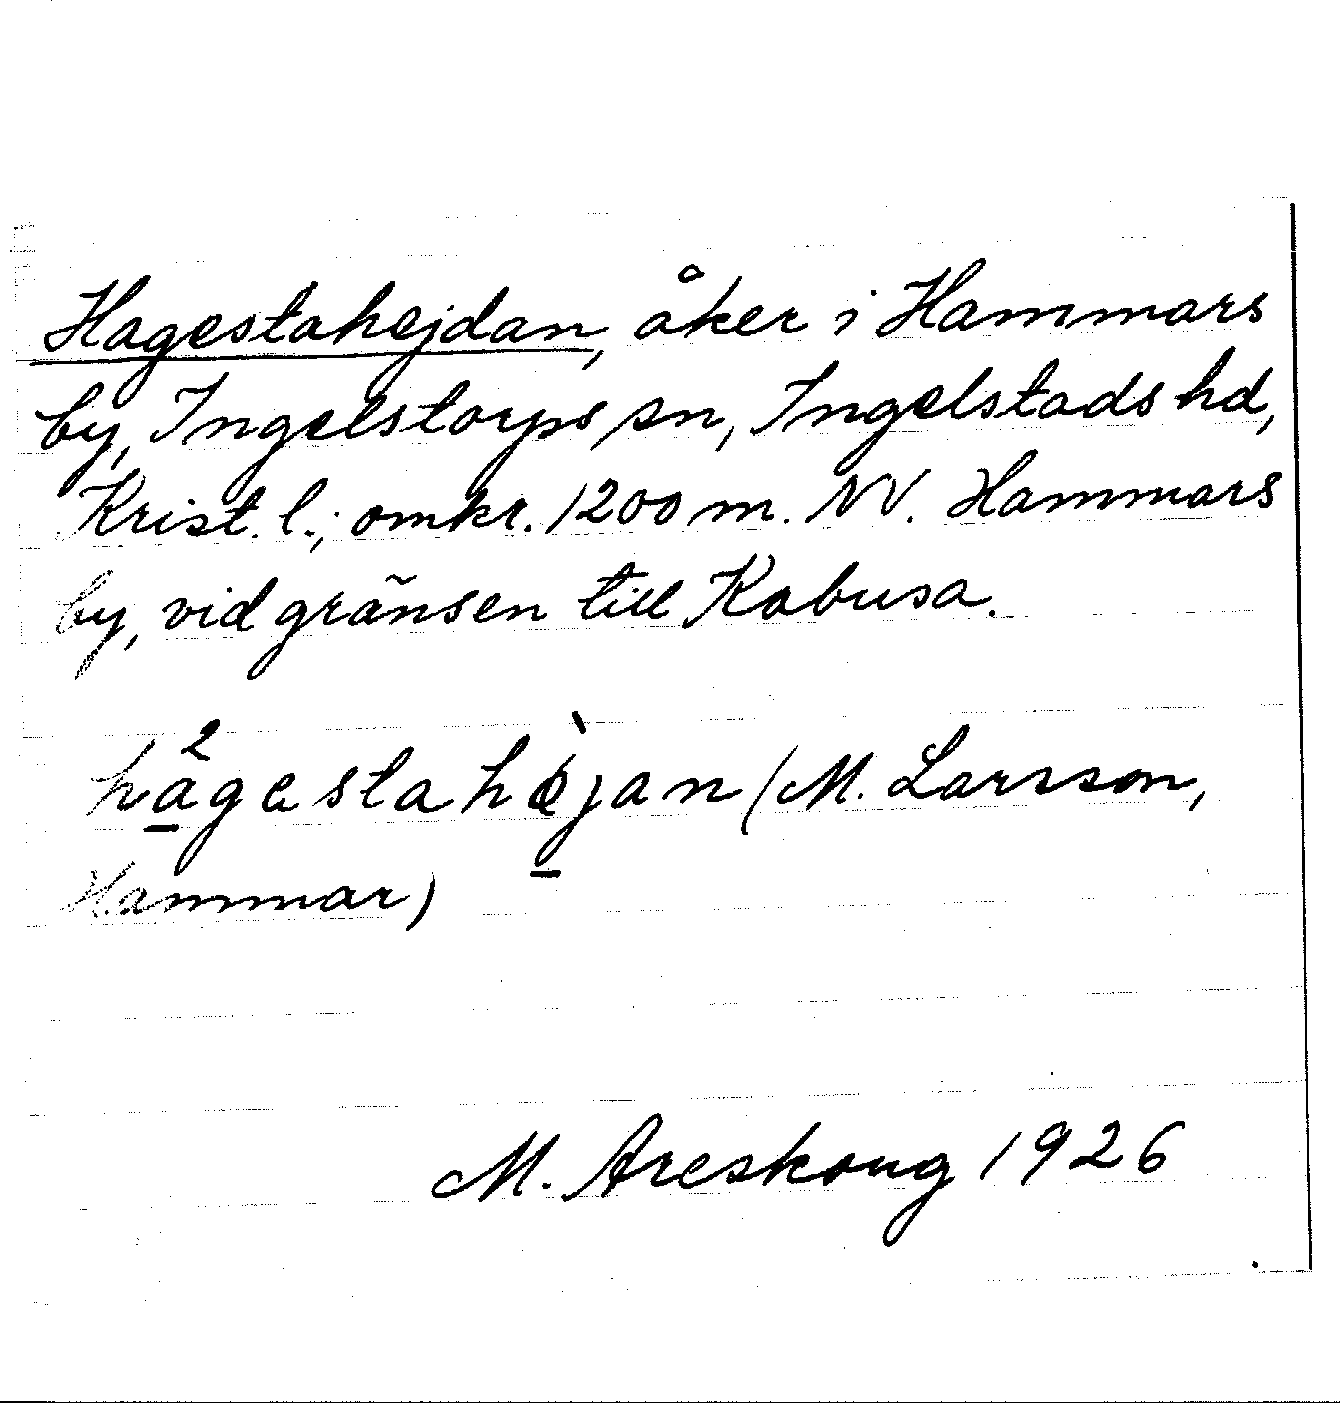 Hagestahejdan, åker i Hammars
by, Ingelstorps sn, Ingelstads hd,
Krist. l.; omkr. 1200 m. NV. Hammars
by, vid gränsen till Kabusa.
(M. Larsson,
Hammar)
M. Areskoug 1926